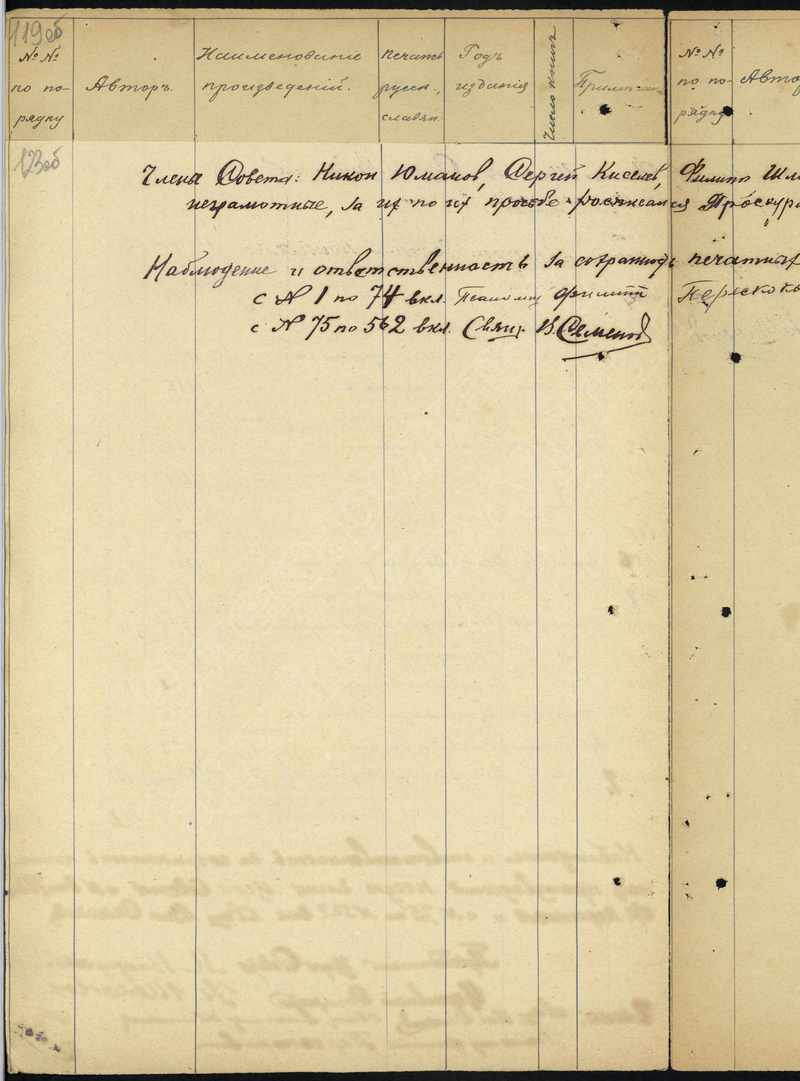 119об
№№ по по-рядку
Авторъ.
Наименованіе произведеній.
Печать русск., славян.
Годъ изданія
Число книгъ
№№ по по-рядку
123об
Члены Совета: Никон Юманов, Сергей Киселев, Филипп
неграмотные, за их по их просьбе росписался Проскур
Наблюдение и ответственность за сохранность печатных
с № 1 по 74 вкл. Псаломщ Филипп
с № 75 по 562 вкл. Свящ. В Семенов